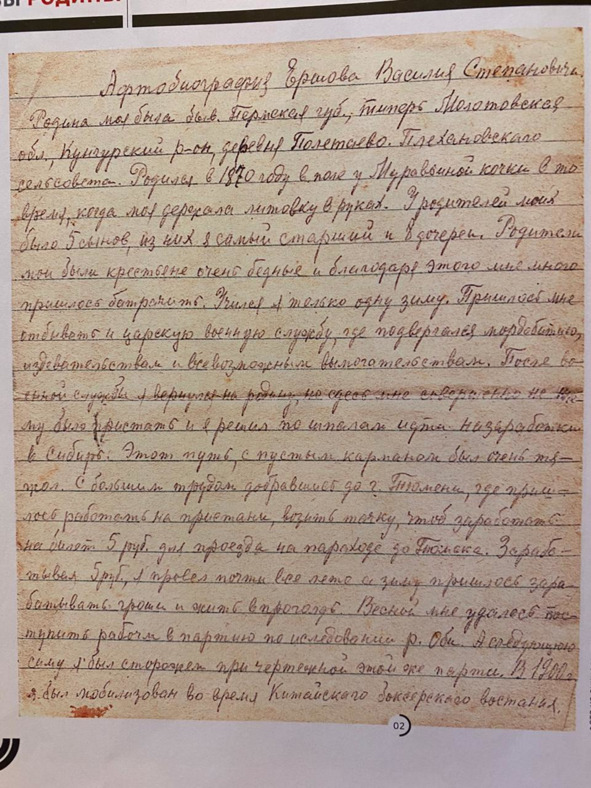 РОДИНЫ
Афтобиография Ершова Василия Степановича.
Родина моя была быв. Пермская губ., типерь Молотовская
обл, Кунгурский р-он, деревня Полетаево. Плехановского
сельсовета. Родился в 1870 году в поле у Муравьиной кочки в то
время, когда моя держала литовку в руках. У родителей моих
было 5 сынов, из них я самый старший и 8 дочерей. Родители
мои были крестьене очень бедные и благодаря этого мне много
пришлось батрачить. Учился я только одну зиму. Пришлось мне
отбывать и царскую военную службу, где подвергался мордобитию,
издевательствам и всевозможным вымогательствам. После во-
енной службы я вернулся на родину, но здесь мне совершенно не к че-
му было пристать и я решил по шпалам идти на заработки
в Сибирь. Этот путь, с пустым карманом был очень тя-
жол. С большим трудом добравшись до г. Тюмени, где приш-
лось работать на пристани, возить тачку, чтоб заработать
на билет 5 руб. для проезда на пароходе до Томска. Зараба-
тывая 5 руб, я провел почти все лето а зиму пришлось зара-
батывать гроши и жить впроголодь. Весной мне удалось пос-
тупить рабочм в партию по иследовании р. Оби. А следующую
зиму я был сторожем при чертежной этой же парти. В 1900 г
я был мобилизован во время Китайскаго боксерскаго востания.
02